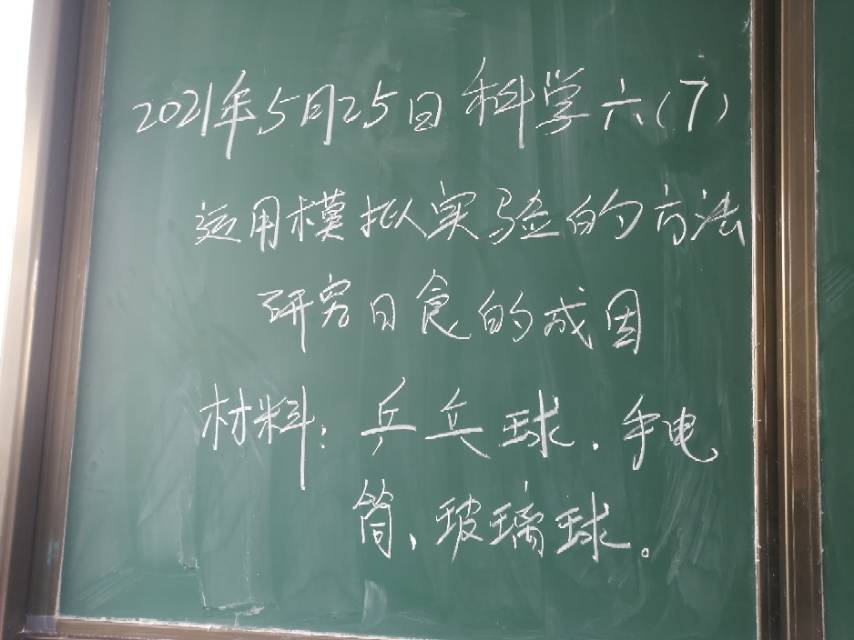 2021年5月25日 科学 六(7)
运用模拟实验的方法
研究日食的成因
材料：乒乓球、手电
筒、玻璃球。